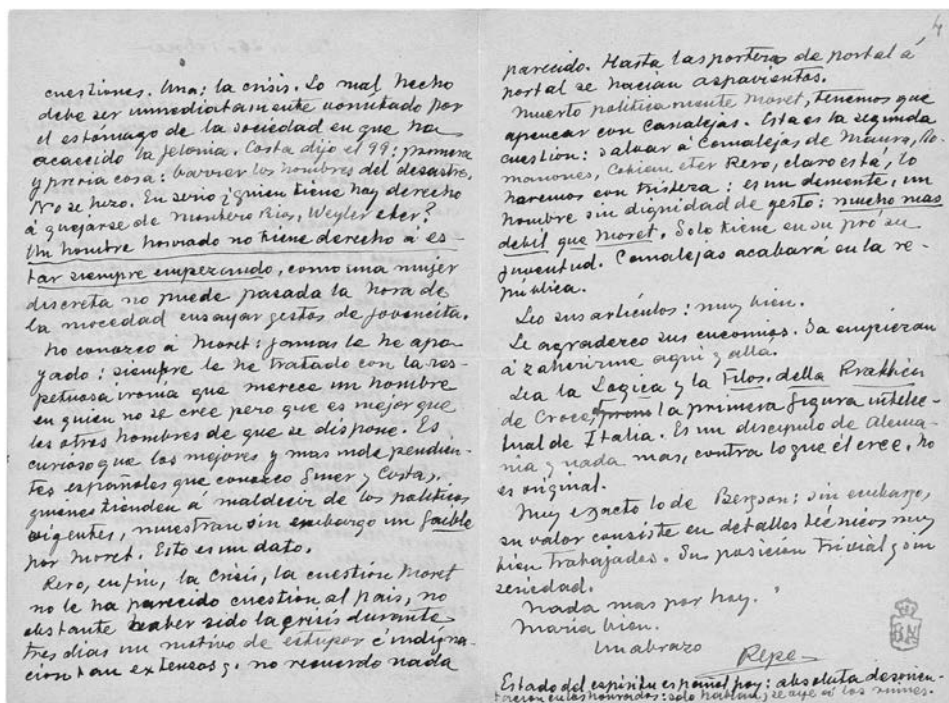 cuestiones. Una: la crisis. Lo mal hecho
debe ser inmediatamente vomitado por
el estómago de la sociedad en que ha
acaecido la felonía. Costa dijo el 99: primera
y previa cosa: barrer los hombres del desastre.
No se hizo. En serio ¿quien tiene hoy derecho
á quejarse de Montero Rios, Weyler etcr?
Un hombre honrado no tiene derecho á es-
tar siempre empezando, como una mujer
discreta no puede pasada la hora de
la mocedad ensayar gestos de jovencita.
No conozco á Moret: jamas le he apo-
yado: siempre le he tratado con la res-
petuosa ironía que merece un hombre
en quien no se cree pero que es mejor que
los otros hombres de que se dispone. Es
curioso que los mejores y mas independien-
tes españoles que conozco Giner y Costa,
quienes tienden á maldecir de los politicos
vigentes, muestran sin embargo un faible
por Moret. Esto es un dato.
Pero, en fin, la crisis, la cuestion Moret
no le ha parecido cuestion al pais, no
obstante haber sido la crisis durante
tres dias un motivo de estupor é indigna-
cion tan extensos, no recuerdo nada
4
parecido. Hasta las porteras de portal á
portal se hacian aspavientos.
Muerto politicamente Moret, tenemos que
apencar con Canalejas. Esta es la segunda
cuestion: salvar á Canalejas de Maura, Ro-
manones, Cobian etcr Pero, claro está, lo
haremos con tristeza: es un demente, un
hombre sin dignidad de gesto: mucho mas
debil que Moret. Solo tiene en su pró su
juventud. Canalejas acabará en la re-
pública.
Leo sus artículos: muy bien.
Le agradezco sus encomios. Ya empiezan
á zaherirme aqui y allá.
Lea la Logica y la Filos. della Prakkica
de Croce, la primera figura intelec-
tual de Italia. Es un discipulo de Alema-
nia y nada mas, contra lo que él cree. No
es original.
Muy exacto lo de Bergson: sin embargo,
su valor consiste en detalles técnicos muy
bien trabajados. Su posicion trivial y sin
seriedad.
Nada mas por hoy.
Maria bien.
Un abrazo
Pepe
Estado del espiritu español hoy: absoluta desorien-
tacion en los honrados: solo hablan, se oye á los ruines.